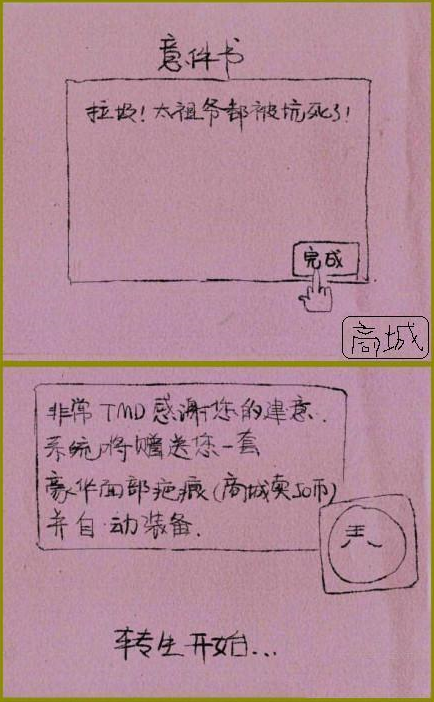 意件书
垃圾！太祖爷都被坑死了！
完成
商城
非常TMD感谢您的建意.
系统将赠送您一套
豪华面部疤痕(商城卖50币)
并自动装备.
转生开始...